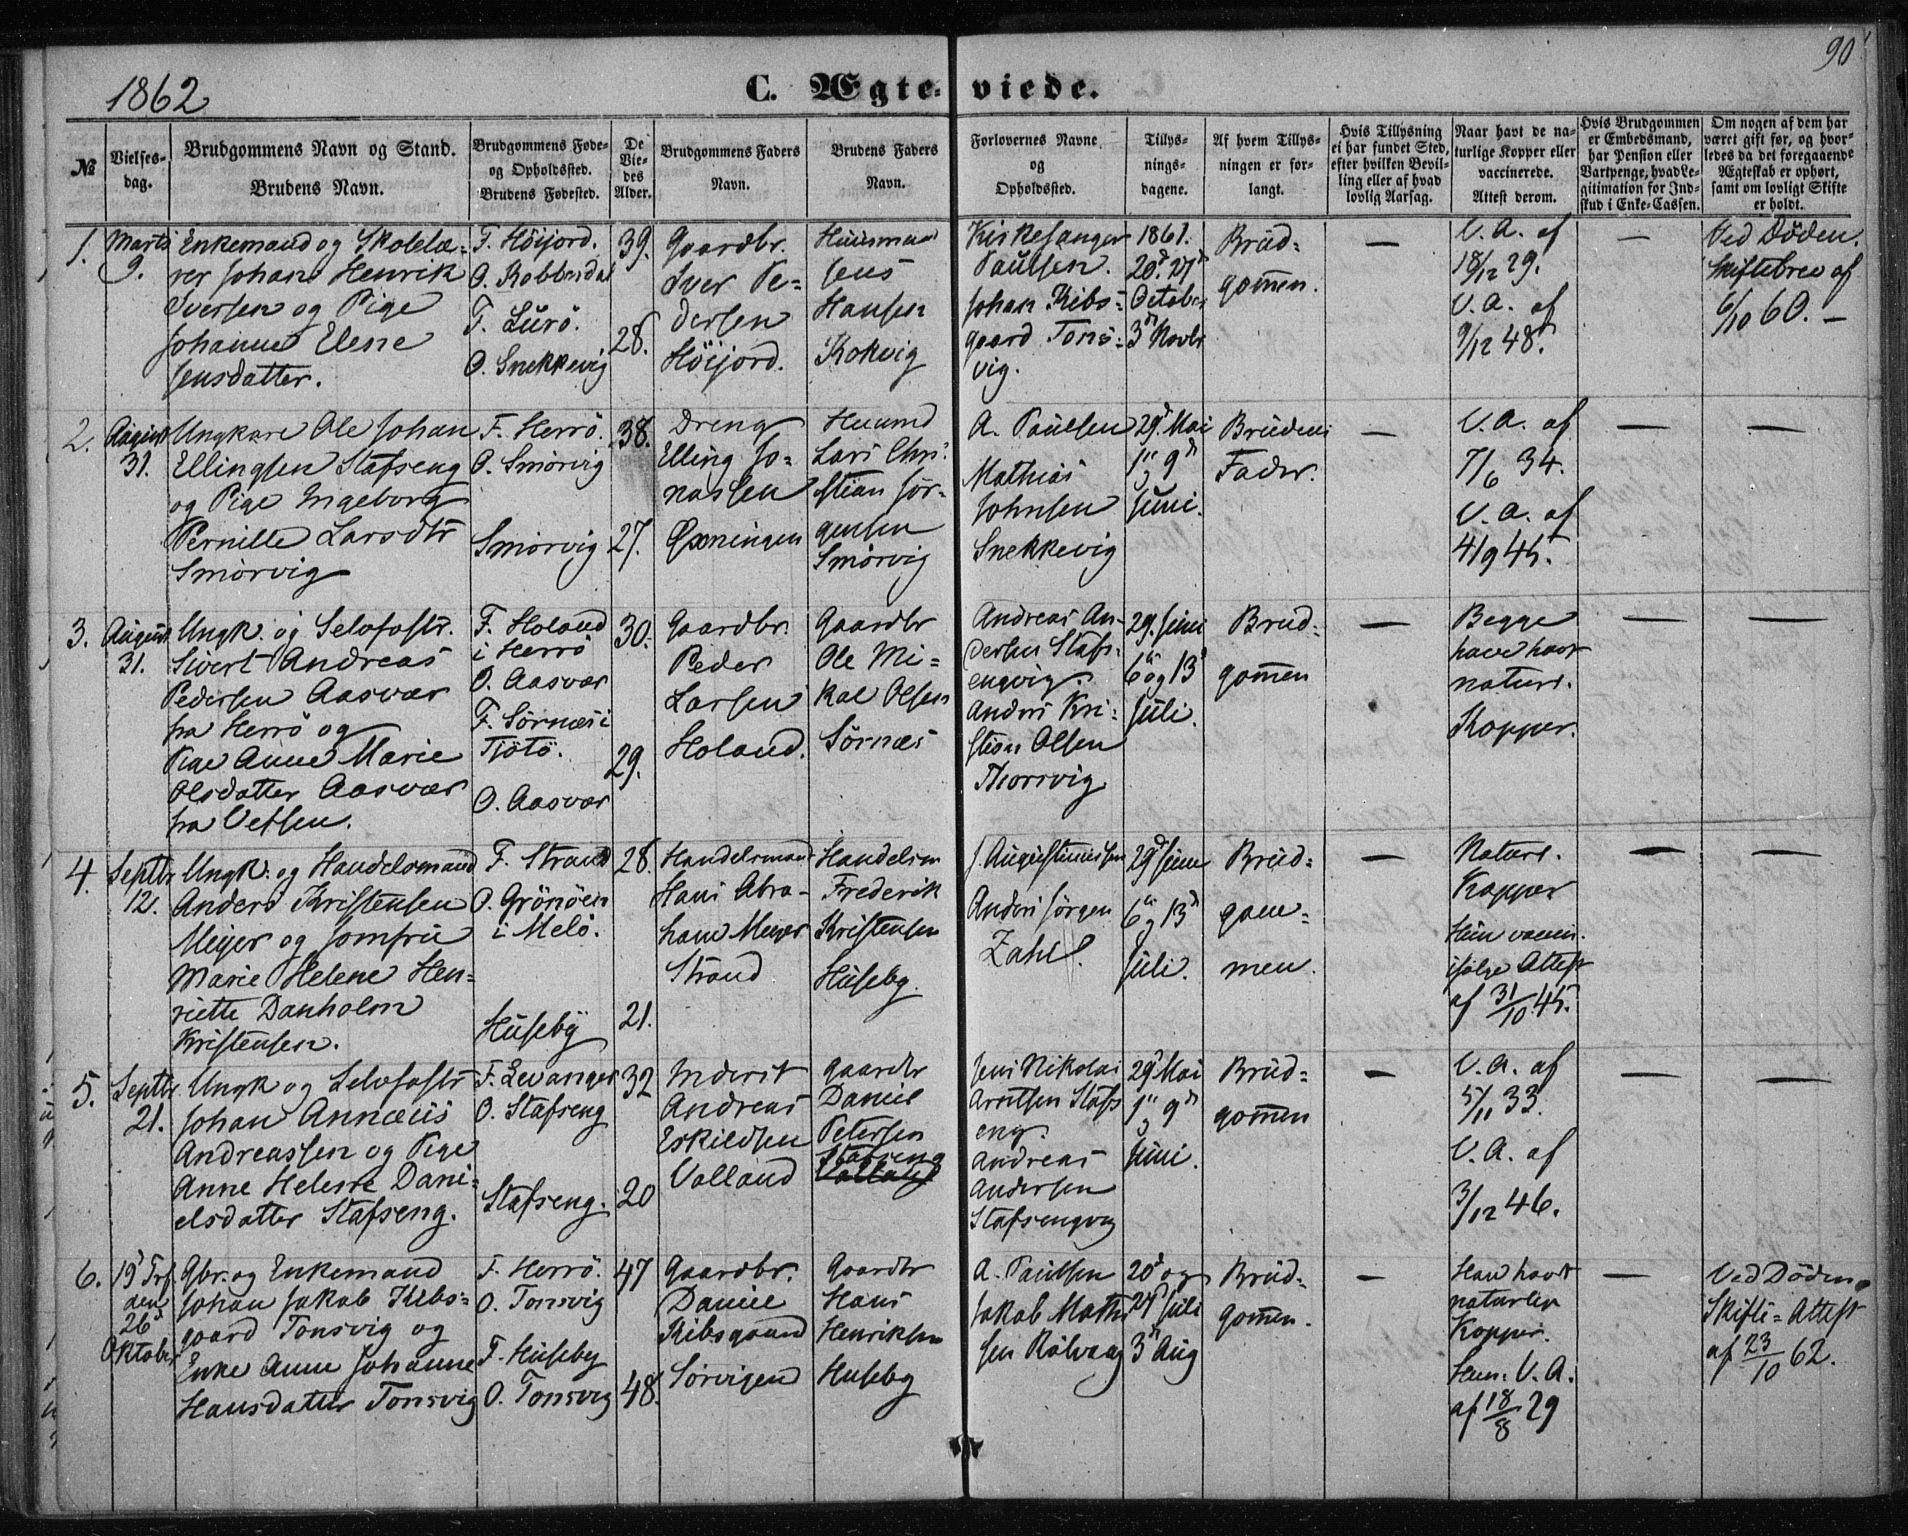 90
1862
C. Ægte-viede.
№
Vielses-
dag.
Brudgommens Navn og Stand.
Brudens Navn.
Brudgommens Føde-
og Opholdssted.
Brudens Fødested.
De
Vie-
des
Alder.
Brudgommens Faders
Navn.
Brudens Faders
Navn.
Forlovernes Navne
og
Opholdssted.
Tillys-
nings-
dagene.
Af hvem Tillys-
ningen er for-
langt.
Hvis Tillysning
ei har fundet Sted,
efter hvilken Bevil-
ling eller af hvad
lovlig Aarsag.
Naar havt de na-
turlige Kopper eller
vaccinerede.
Attest derom.
Hvis Brudgommen
er Embedsmand,
har Pension eller
Vartpenge, hvad Le-
gitimation for Ind-
skud i Enke-Cassen.
Om nogen af dem har
været gift før, og hvor-
ledes da det foregaaende
Ægteskab er ophørt,
samt om lovligt Skifte
er holdt.
1.
Marts
9.
Enkemand og Skolelæ-
rer Johan Henrik
Iversen og Pige
Johanne Elene
Jensdatter.
F. Höijord.
O. Kobberdal
F. Lurö.
O. Snekkevig
39.
28.
Gaardbr.
Iver Pe-
dersen
Höijord.
Huusmand
Jens
Hansen
Kokvig
Kirkesanger
Paulsen.
Johan Ribs-
gaard Tons-
vig.
1861.
20d 27d
October
3d Novbr
Brud-
gommen.
—
V. A. af
18/12 29.
V. A. af
9/12 48.
—
Ved Døden.
Skiftebrev af
6/10 60. —
2.
August
31.
Ungkare Ole Johan
Ellingsen Stafseng
og Pige Ingeborg
Pernille Larsdtr
Smörvig
F. Herrö.
O. Smörvig
Smörvig
38.
27.
Dreng
Elling Jo-
nassen
Øxningen
Huusmd
Lars Chri-
stian Jör-
gensen
Smörvig
A. Paulsen
Mathias
Johnsen
Snekkevig
29d Mai
1ste 9d
Juni.
Brudens
Fader.
—
V. A. af
7/6 34.
V. A. af
4/9 45.
—
—
3.
August
31.
Ungk. og Selvfostr.
Sivert Andreas
Pedersen Aasvær
fra Herrö og
Pige Anne Marie
Olsdatter Aasvær
fra Vefsen.
F. Holand
i Herrö
O. Aasvær
F. Sörnæs i
Tjötö.
O. Aasvær
30.
29.
Gaardbr.
Peder
Larsen
Holand.
Gaardbr
Ole Mi-
kal Olsen
Sörnæs
Andreas An-
dersen Stafs-
engvig.
Anders Kri-
stian Olsen
Thorsvig
29. Juni
6te og 13d
Juli.
Brud-
gommen
—
Begge
have havt
naturl.
Kopper.
—
—
4.
Septbr
12.
Ungk. og Handelsmand
Anders Kristensen
Meijer og Jomfru
Marie Helene Hen-
riette Danholm
Kristensen.
F. Strand
O. Grönöen
i Melö.
Huseby
28.
21.
Handelsmand
Hans Abra-
ham Meijer
Strand
Handelsm
Frederik
Kristensen
Huseby.
J. Augustinussen
Anders Jörgen
Zahl.
29d Juni
6te og 13d
Juli.
Brud-
gom-
men.
—
Naturl.
Kopper
Hun vaccin.
ifølge Attest
af 31/10 45.
—
—
5.
Septbr
21.
Ungk og Selvfostr
Johan Annæus
Andreassen og Pige
Anne Helene Dani-
elsdatter Stafseng.
F. Levanger
O. Stafseng
Stafseng.
32
20
Inderst
Andreas
Eskildsen
Volland
Gaardbr
Daniel
Petersen
Stafseng
Jens Nikolai
Arntsen Stafs
eng.
Andreas
Andersen
Stafsengvig
29d Mai
1ste 9d
Juni.
Brud-
gommen
—
V. A. af
5/11 33.
V. A. af
3/12 46.
—
—
6.
den
26d
Oktober
Gbr. og Enkemand
Johan Jakob Ribs-
gaard Tonsvig og
Enke Anne Johanne
Hansdatter Tonsvig
F. Herrö.
O. Tonsvig
F. Huseby
O. Tonsvig
47
48.
Gaardbr.
Daniel
Ribsgaard
Sörvigen
Gaardbr
Hans
Henriksen
Huseby
A. Paulsen
Jakob Mathi-
sen Rölvaag
20d og
27d Juli
3d Aug
Brud-
gommen.
—
Han havt
naturlig
Kopper.
Hun. V. A.
af 18/8 29
—
Ved Döden.
Skifte-Attest
af 23/10 62.